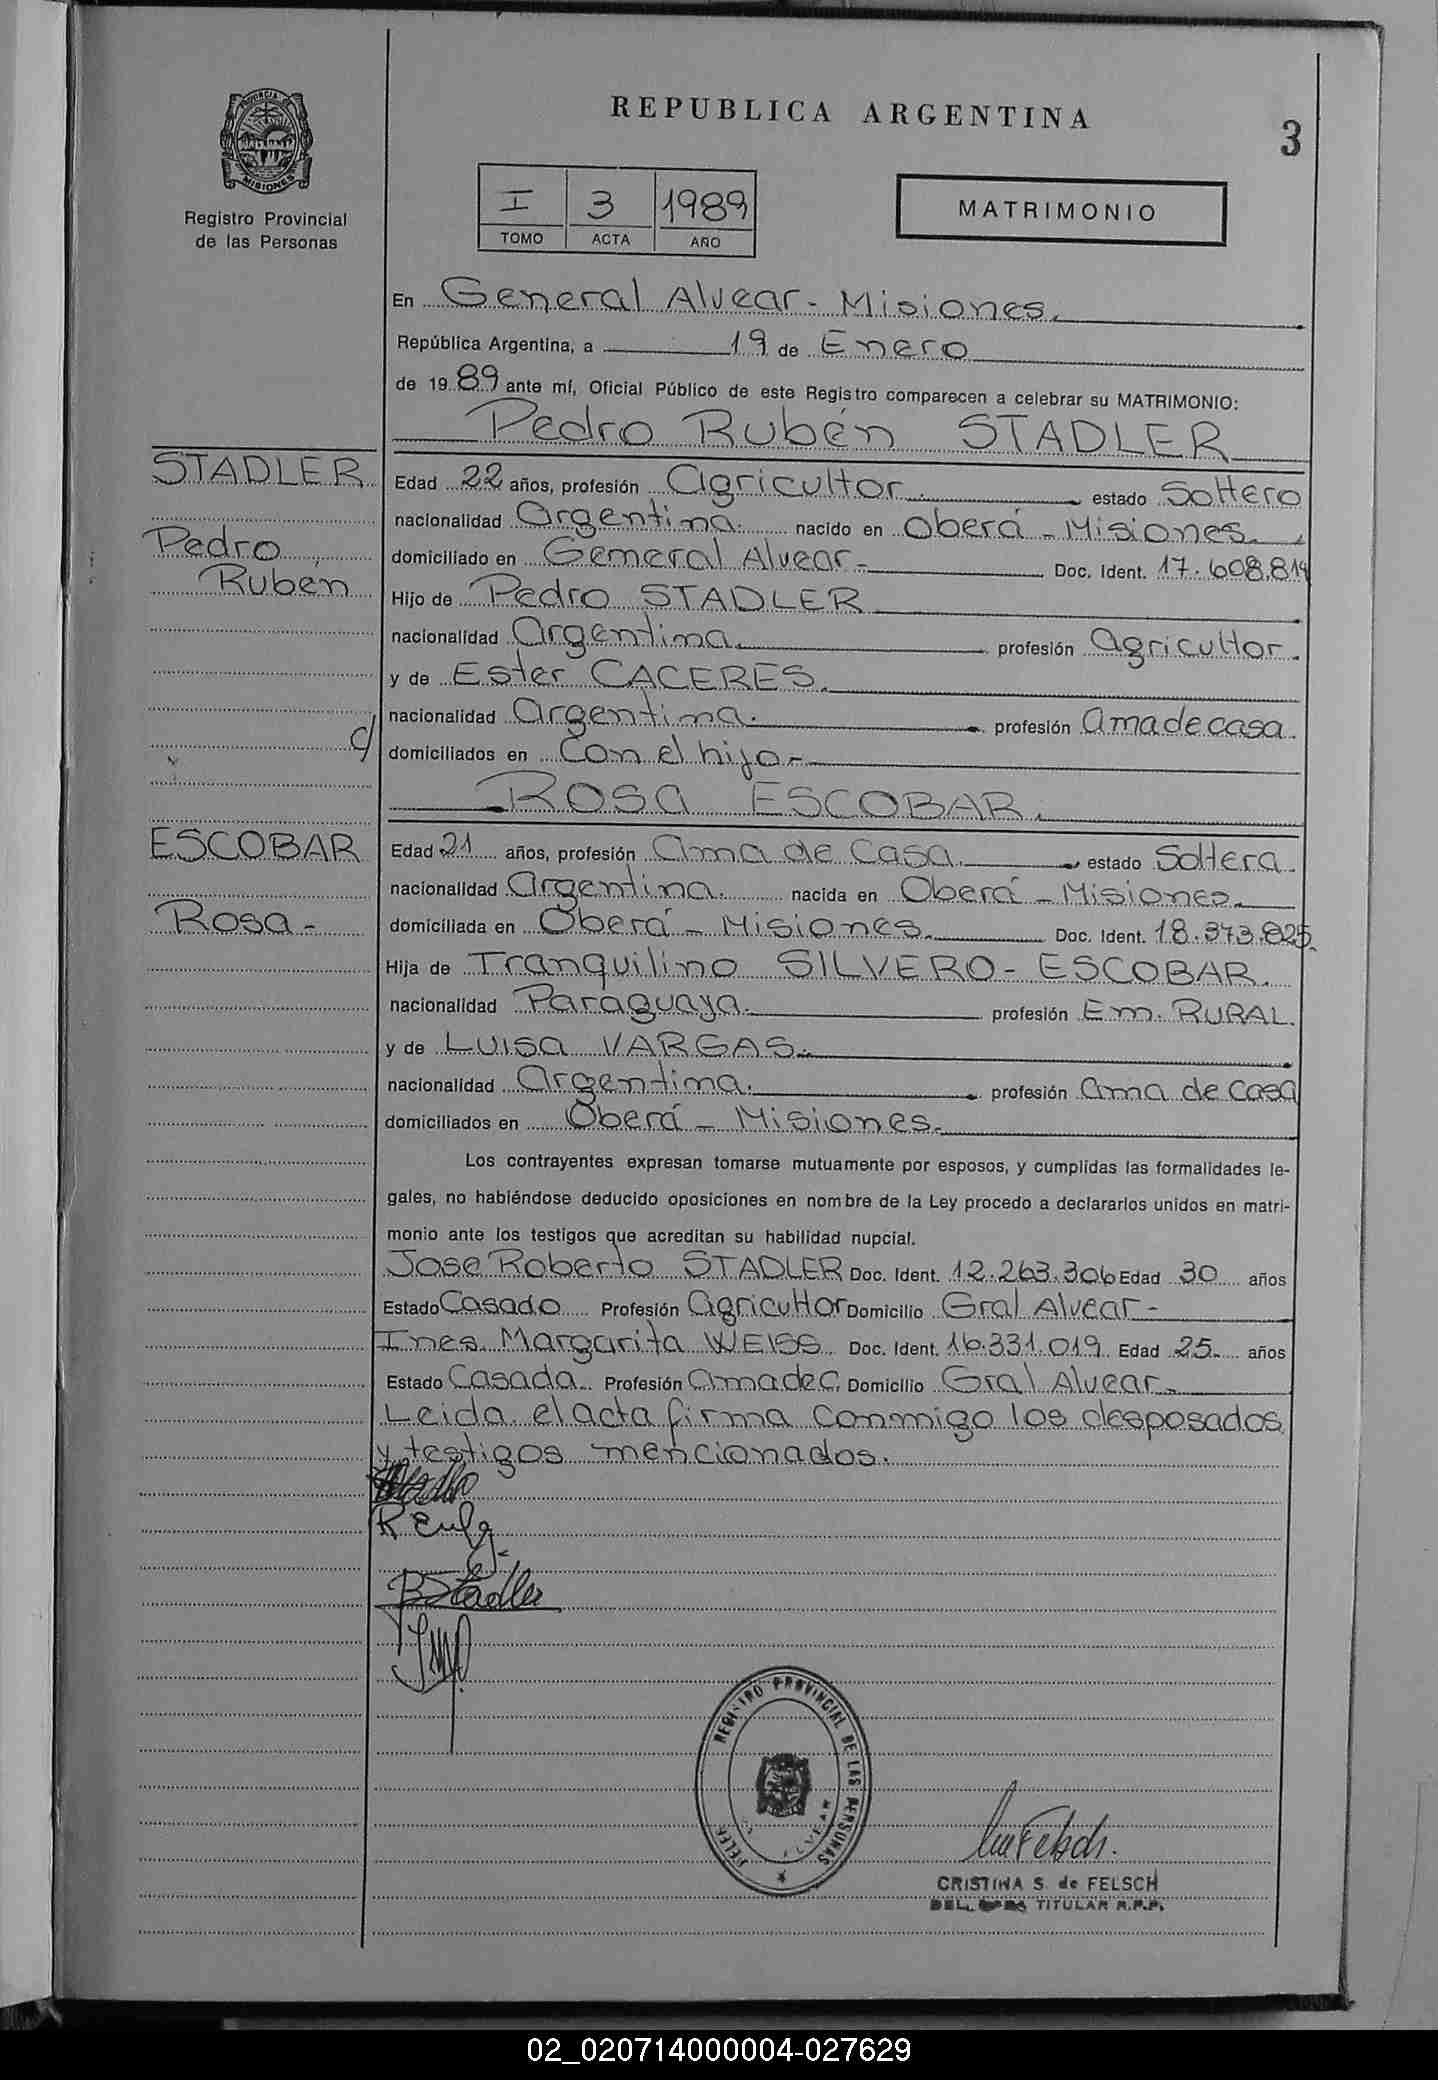 REPUBLICA ARGENTINA
3
PROVINCIA DE MISIONES
Registro Provincial
de las Personas
I 3 1989
TOMO ACTA AÑO
MATRIMONIO
En General Alvear - Misiones.
República Argentina, a 19 de Enero
de 1989 ante mí, Oficial Público de este Registro comparecen a celebrar su MATRIMONIO:
Pedro Rubén STADLER
STADLER
Pedro
Ruben
Edad 22 años, profesión Agricultor estado Soltero
nacionalidad Argentina. nacido en Oberá - Misiones.
domiciliado en General Alvear - Doc. Ident. 17.608.814
Hijo de Pedro STADLER
nacionalidad Argentina. profesión Agricultor.
y de Ester CACERES.
nacionalidad Argentina. profesión Ama de casa.
c/
domiciliados en Con el hijo -
Rosa ESCOBAR.
ESCOBAR
Rosa -
Edad 21 años, profesión Ama de Casa. estado Soltera
nacionalidad Argentina. nacida en Oberá - Misiones.
domiciliada en Oberá - Misiones. Doc. Ident. 18.373.825.
Hija de Tranquilino SILVERO - ESCOBAR.
nacionalidad Paraguaya. profesión Em. RURAL.
y de Luisa VARGAS.
nacionalidad Argentina. profesión Ama de casa
domiciliados en Oberá - Misiones.
Los contrayentes expresan tomarse mutuamente por esposos, y cumplidas las formalidades le-
gales, no habiéndose deducido oposiciones en nombre de la Ley procedo a declararlos unidos en matri-
monio ante los testigos que acreditan su habilidad nupcial.
Jose Roberto STADLER Doc. Ident. 12.263.306 Edad 30 años
Estado Casado Profesión Agricultor Domicilio Gral Alvear -
Ines Margarita WEISS Doc. Ident. 16.331.019 Edad 25. años
Estado Casada Profesión Ama de C. Domicilio Gral Alvear -
Leida el acta firma conmigo los desposados
y testigos mencionados.
REGISTRO PROVINCIAL DE LAS PERSONAS
ALVEAR
CRISTINA S. de FELSCH
DEL. TITULAR R.P.P.
02_020714000004-027629